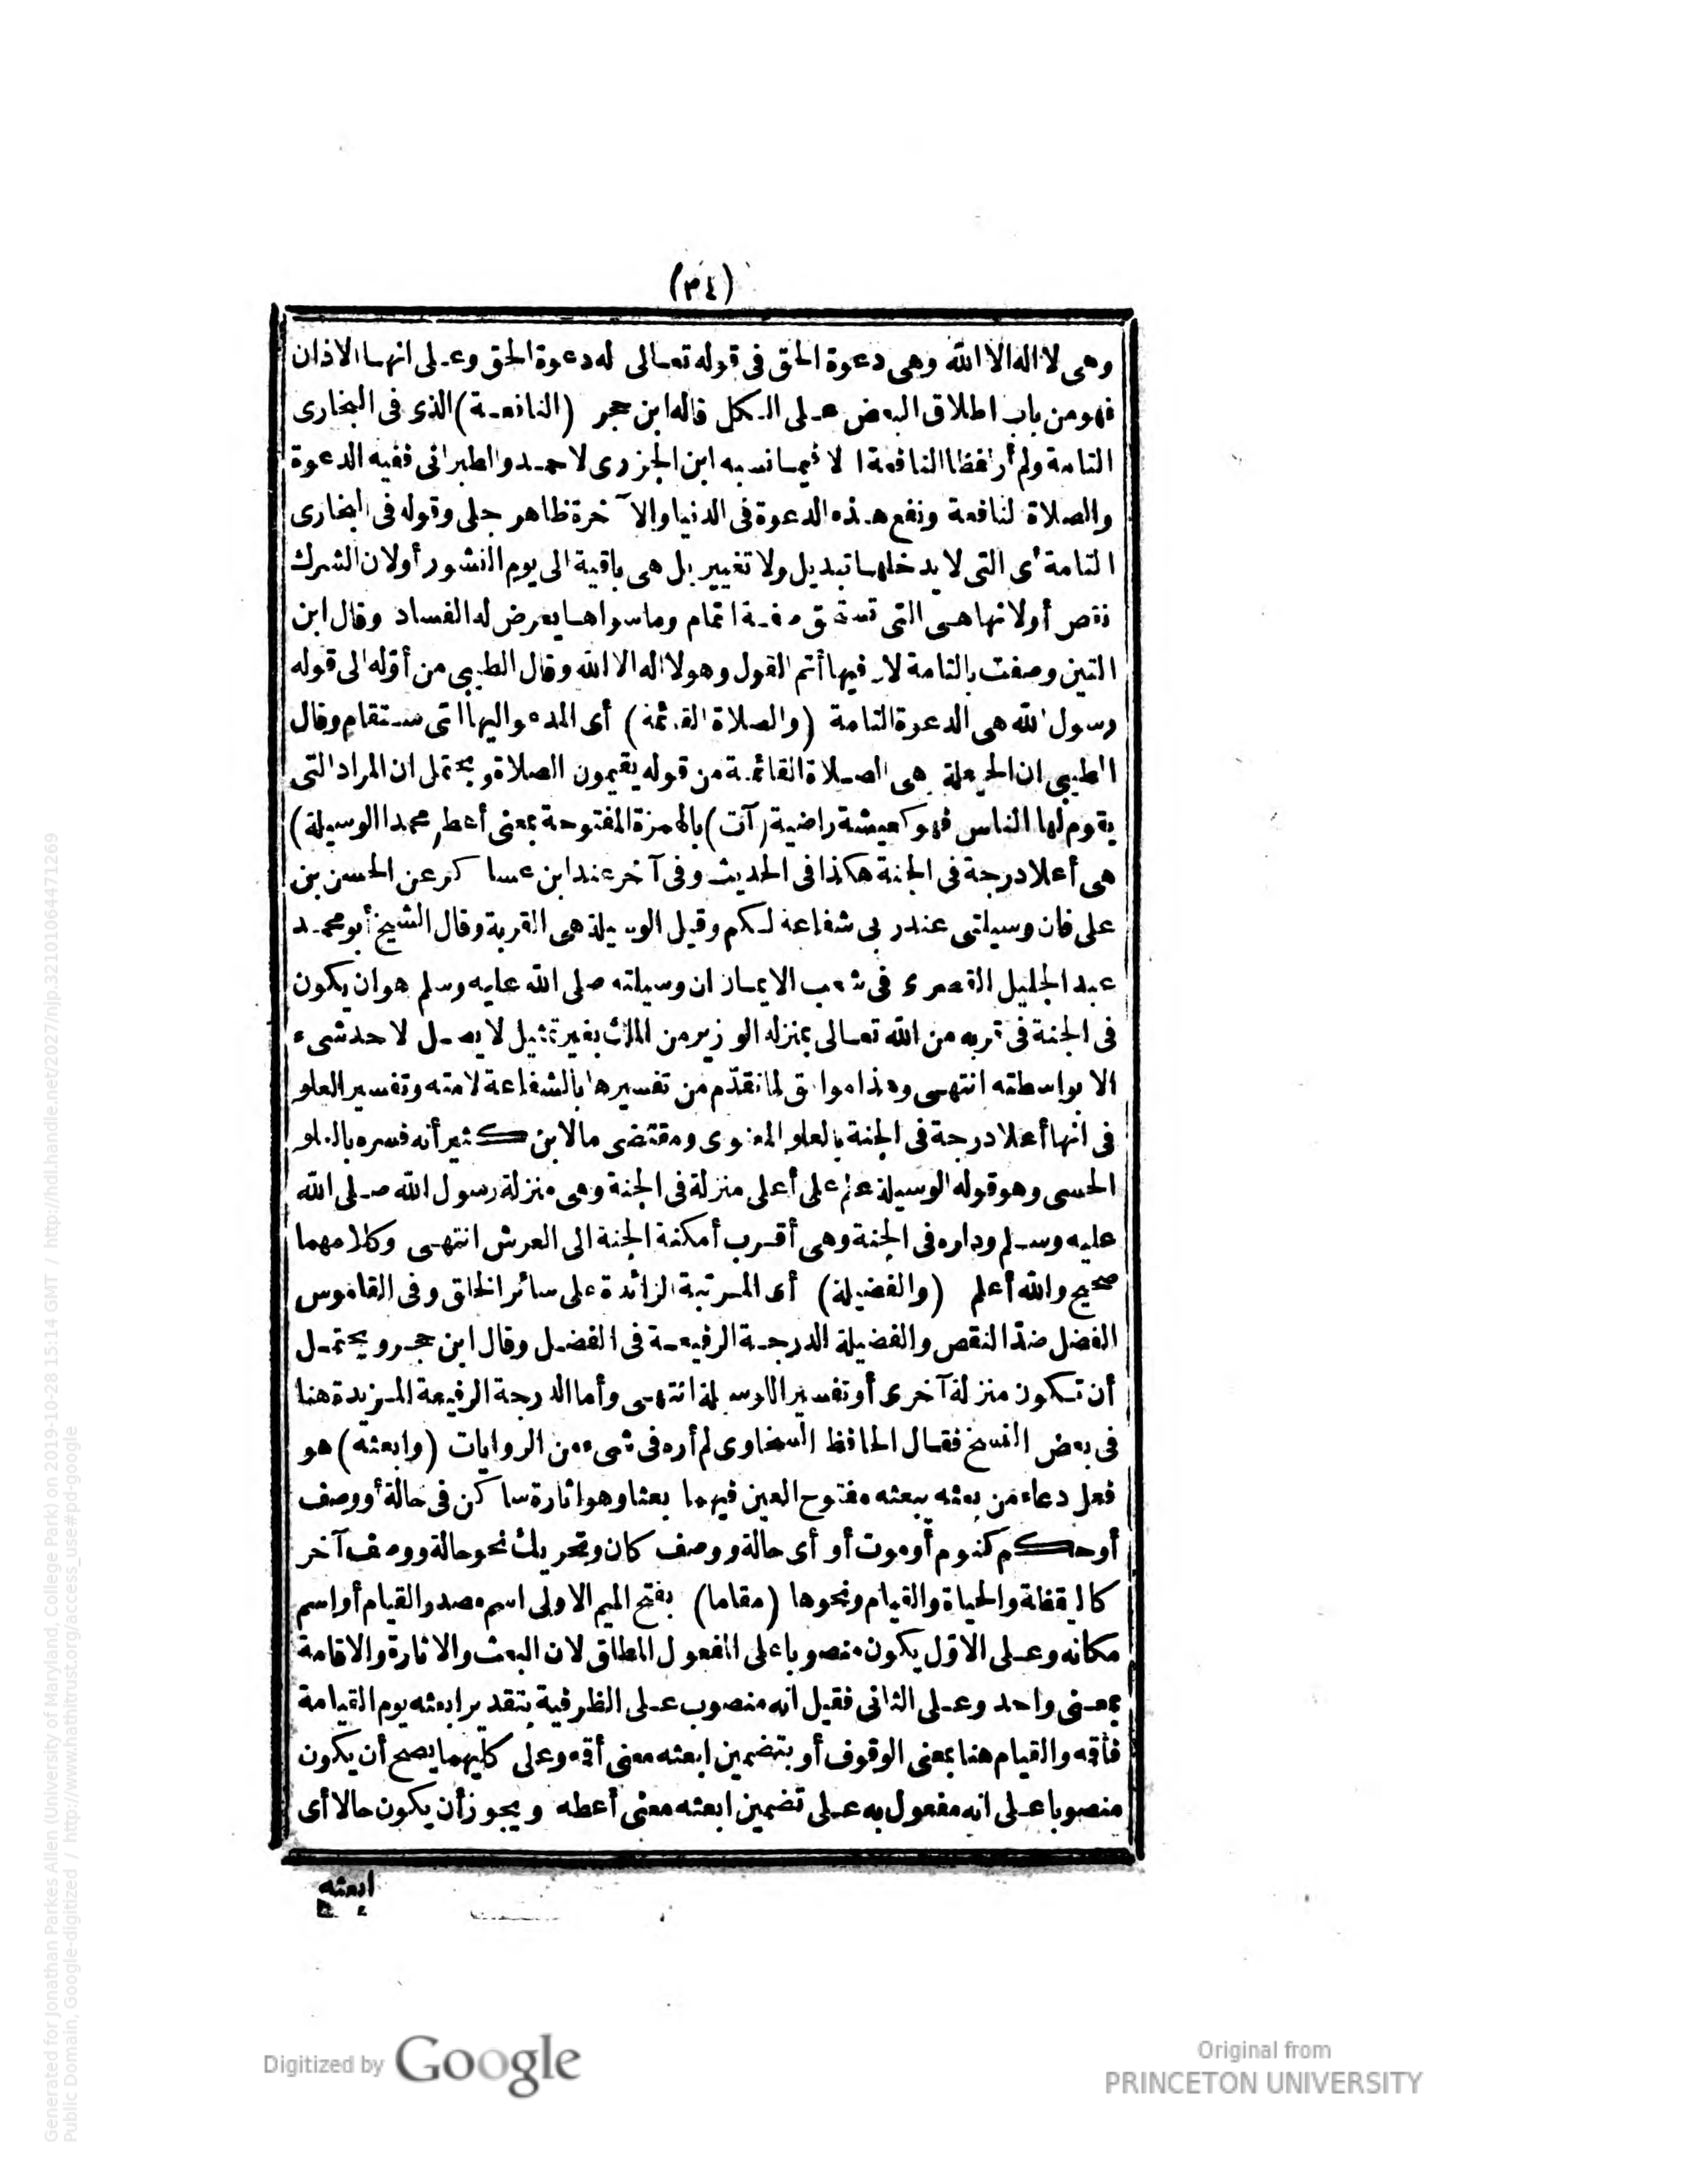 (٣٤)
وهى لا اله الا الله وهى دعوة الحق فى قوله تعالى له دعوة الحق وعلى انها الاذان
فهو من باب اطلاق البعض على الكل قاله ابن حجر (النافعة) الذى فى البخارى
التامة ولم أر لفظ النافعة الا فيما نسبه ابن الجزرى لاحمد والطبرانى ففيه الدعوة
والصلاة النافعة ونفع هذه الدعوة فى الدنيا والآخرة ظاهر جلى وقوله فى البخارى
التامة أى التى لا يدخلها تبديل ولا تغيير بل هى باقية الى يوم النشور أولان الشرك
نقص أولانها هى التى تستحق صفة التمام وما سواها يعرض له الفساد وقال ابن
التين وصفت بالتامة لان فيها أتم القول وهو لا اله الا الله وقال الطيبى من أوّله الى قوله
رسول الله هى الدعوة التامة (والصلاة القائمة) أى المدعو اليها التى ستقام وقال
الطيبى ان الحيعلة هى الصلاة القائمة من قوله يقيمون الصلاة ويحتمل ان المراد التى
يقوم لها الناس فهو كعيشة راضية (آت) بالهمزة المفتوحة بمعنى أعط (محمدا الوسيلة)
هى أعلا درجة فى الجنة هكذا فى الحديث وفى آخر عند ابن عساكر عن الحسن بن
على فان وسيلتى عند ربى شفاعة لكم وقيل الوسيلة هى القربة وقال الشيخ أبو محمد
عبد الجليل القصرى فى شعب الايمان ان وسيلته صلى الله عليه وسلم هو ان يكون
فى الجنة فى قربه من الله تعالى بمنزلة الوزير من الملك بغير تمثيل لا يصل لاحد شىء
الا بواسطته انتهى وهذا موافق لما تقدّم من تفسيرها بالشفاعة لامته وتفسير العلو
فى انها أعلا درجة فى الجنة بالعلو المعنوى ومقتضى ما لابن كثير أنه فسره بالعلو
الحسى وهو قوله الوسيلة علم على أعلى منزلة فى الجنة وهى منزلة رسول الله صلى الله
عليه وسلم وداره فى الجنة وهى أقرب أمكنة الجنة الى العرش انتهى وكلامهما
صحيح والله أعلم (والفضيلة) أى المرتبة الزائدة على سائر الخلق وفى القاموس
الفضل ضدّ النقص والفضيلة الدرجة الرفيعة فى الفضل وقال ابن حجر ويحتمل
أن تكون منزلة آخرى أو تفسير اللوسيلة انتهى وأما الدرجة الرفيعة المزيدة هنا
فى بعض النسخ فقال الحافظ السخاوى لم أره فى شىء من الروايات (وابعثه) هو
فعل دعاء من بعثه يبعثه مفتوح العين فيهما بعثا وهو اثارة ساكن فى حالة أو وصف
أو حكم كنوم أو موت أو أى حالة ووصف كان وتحريك نحو حالة ووصف آخر
كاليقظة والحياة والقيام ونحوها (مقاما) بفتح الميم الاولى اسم مصدر القيام أو اسم
مكانه وعلى الاوّل يكون منصوبا على المفعول المطلق لان البعث والاثارة والاقامة
بمعنى واحد وعلى الثانى فقيل انه منصوب على الظرفية بتقدير ابعثه يوم القيامة
فأقه والقيام هنا بمعنى الوقوف أو بتضمين ابعثه معنى أقه وعلى كليهما يصح أن يكون
منصوبا على انه مفعول به على تضمين ابعثه معنى أعطه ويجوز أن يكون حالا أى
ابعثه
Digitized by Google
Original from
PRINCETON UNIVERSITY
Generated for Jonathan Parkes Allen (University of Maryland, College Park) on 2019-10-28 15:14 GMT / http://hdl.handle.net/2027/njp.32101064471269
Public Domain, Google-digitized / http://www.hathitrust.org/access_use#pd-google